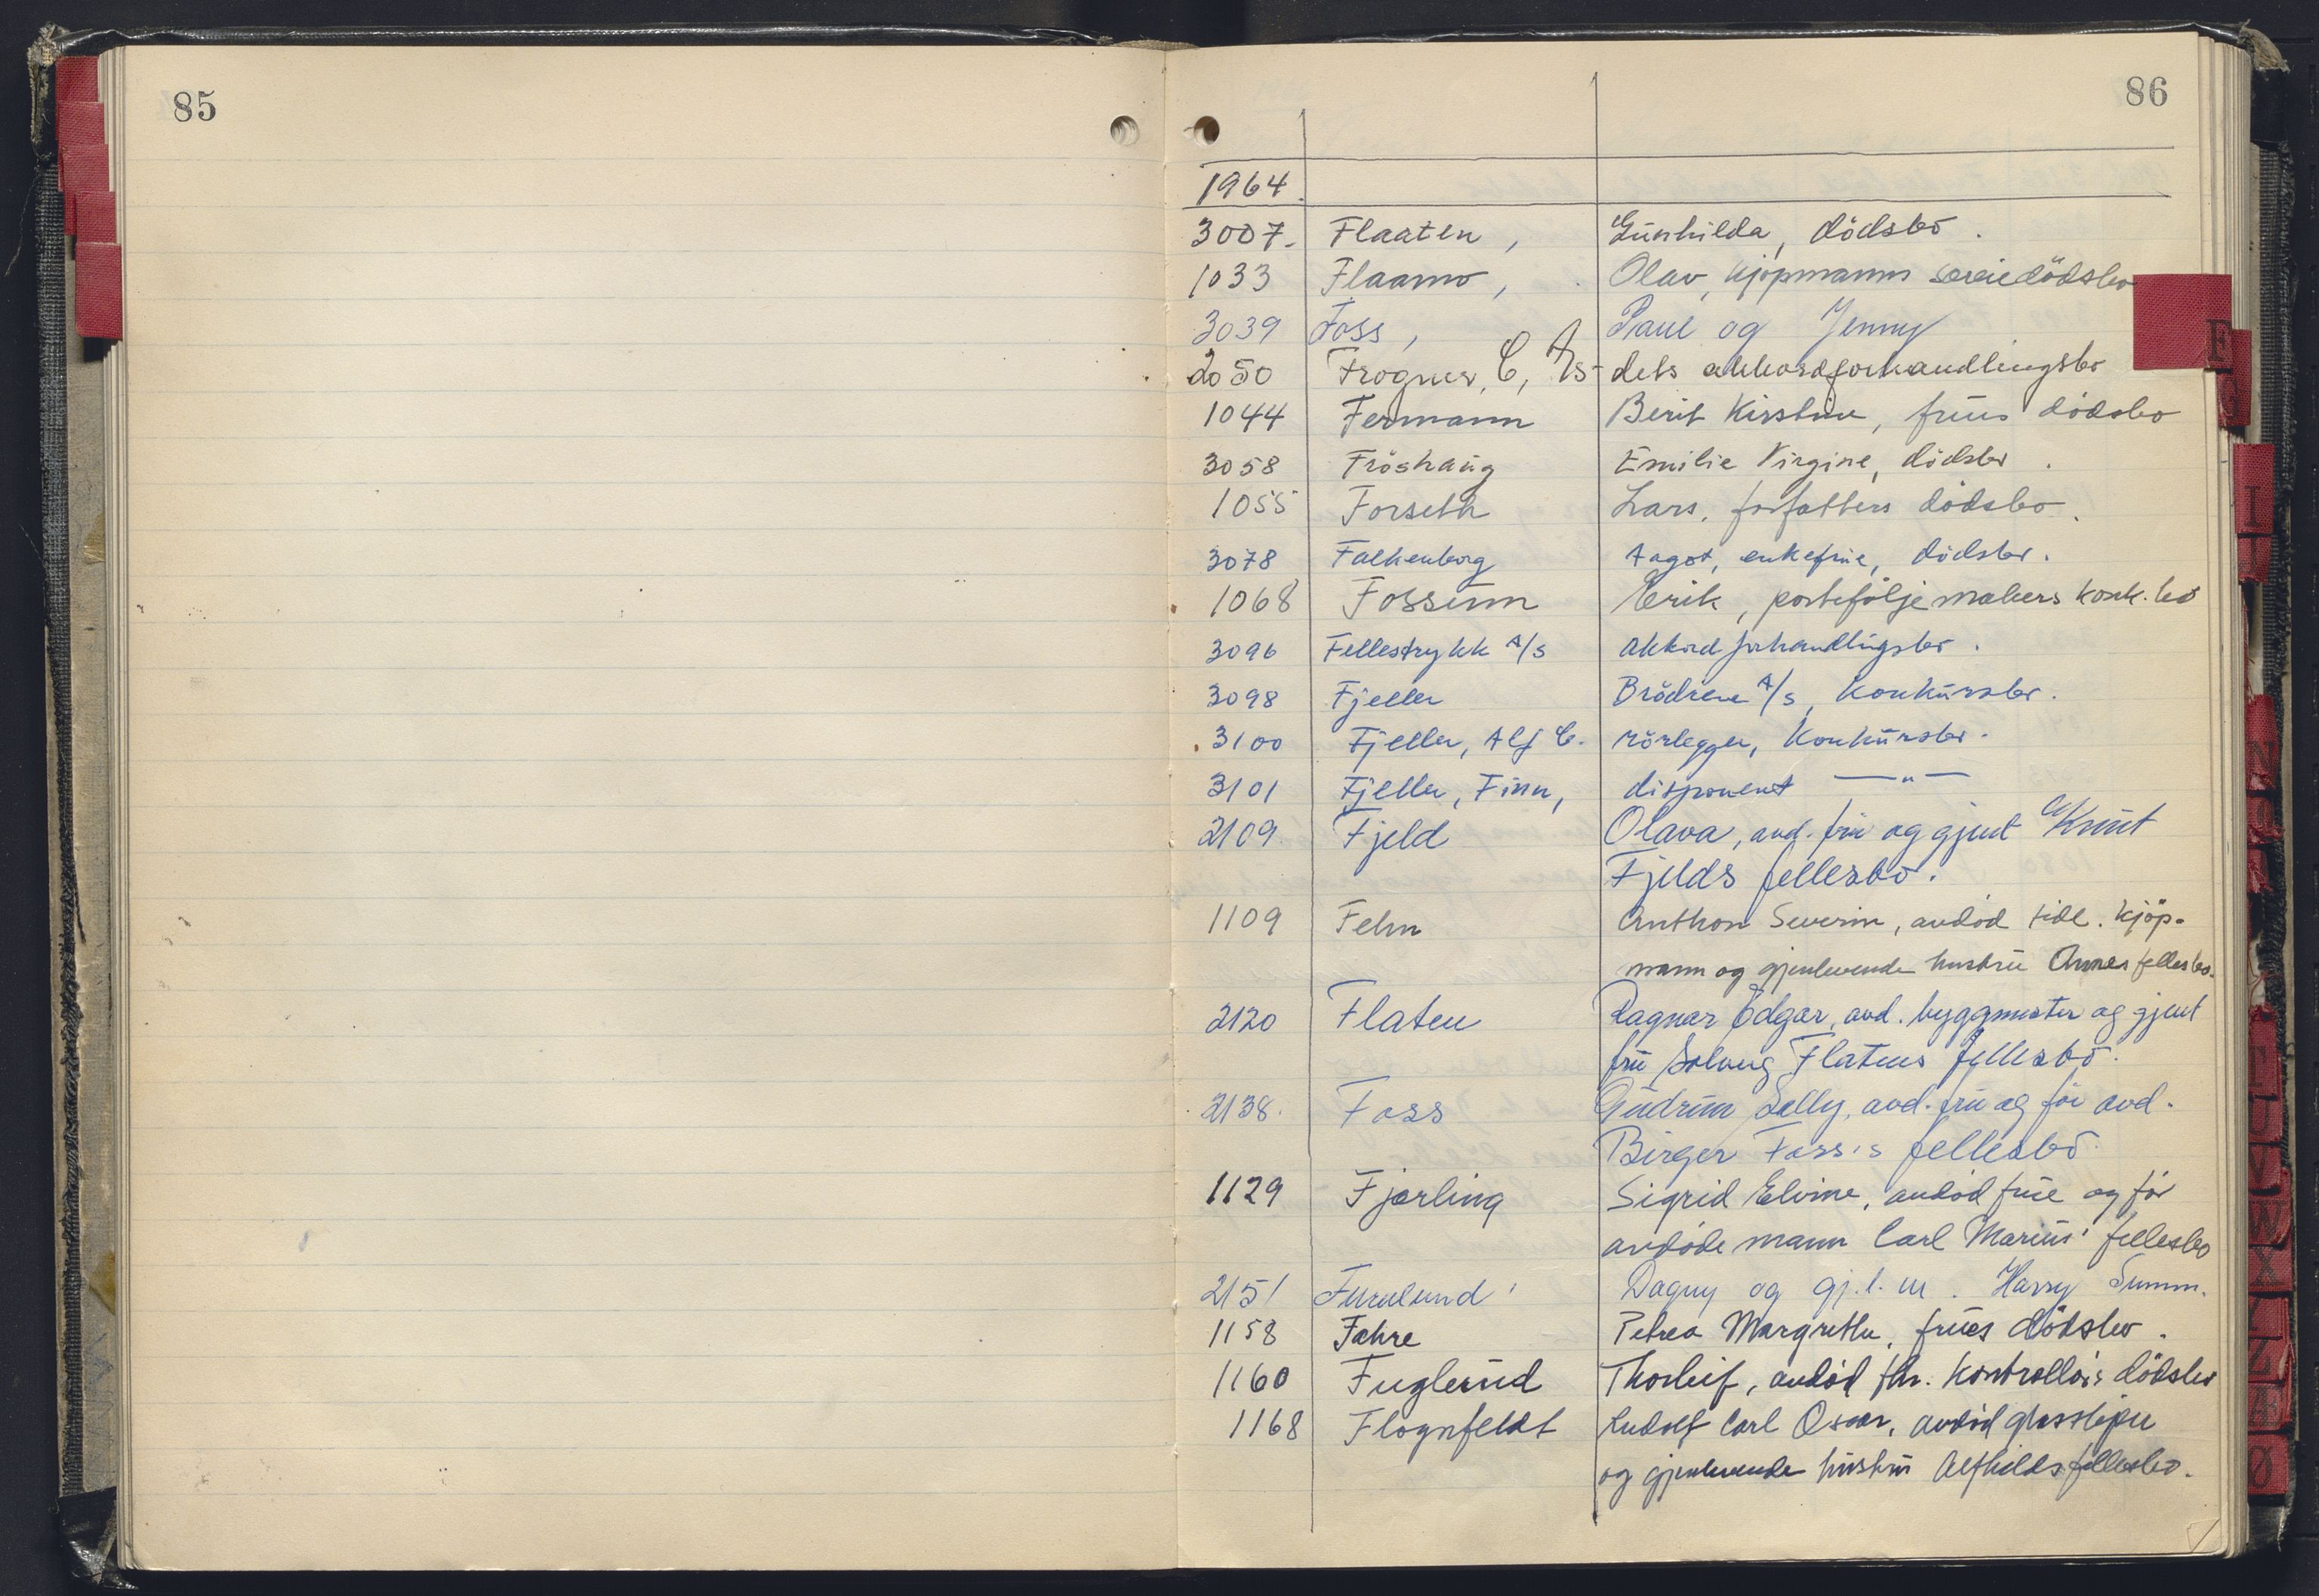 85
86
1964.
3007. Flaaten, Gunhilda, dödsbo.
1033 Flaamo, Olav, kjöpmanns særiedödsbo
3039 Foss, Paul og Jenny
2050 Frogner, C, A/s dets akkordforhandlingsbo
1044 Fermann Berit Kirstine, frues dödsbo
3058 Fröshaug Emilie Virgine, dödsbo.
1055 Forseth Lars, forfatters dödsbo.
3078 Falkenborg Aagot, enkefrue, dödsbo.
1068 Fossum Erik, porteföljemakers konk.bo
3096 Fellestrykk A/s akkordforhandlingsbo.
3098 Fjeller Brödrene A/s, konkursbo.
3100 Fjeller, Alf C. rörlegger, konkursbo.
3101 Fjeller, Finn, disponent —"—
2109 Fjeld Olava, avd. fru og gjenl Knut
Fjelds fellesbö.
1109 Fehn Anthon Severin, avdöd tidl. kjöp-
mann og gjenlevende hustru Annes fellesbo.
2120 Flaten Ragnar Edgar, avd. byggmester og gjenl
fru Solveig Flatens fellesbö.
2138. Foss Gudrun Selly, avd. fru og för avd.
Birger Foss's fellesbö.
1129 Fjærling Sigrid Elvine, avdöd frue og för
avdöde mann Carl Marius' fellesbo
2151 Furulund Dagny og gj.l.m. Harry Summ.
1158 Fahre Petrea Margrethe, frues dödsbo.
1160 Fuglerud Thorleif, avdöd fhv. kontrollörs dödsbo
1168 Flognfeldt Rudolf Carl Oscar, avdöd glassliper
og gjenlevende hustru Alfhilds fellesbo.
F
G
I
N
U
V
W
X
Y
Z
Æ
Ø